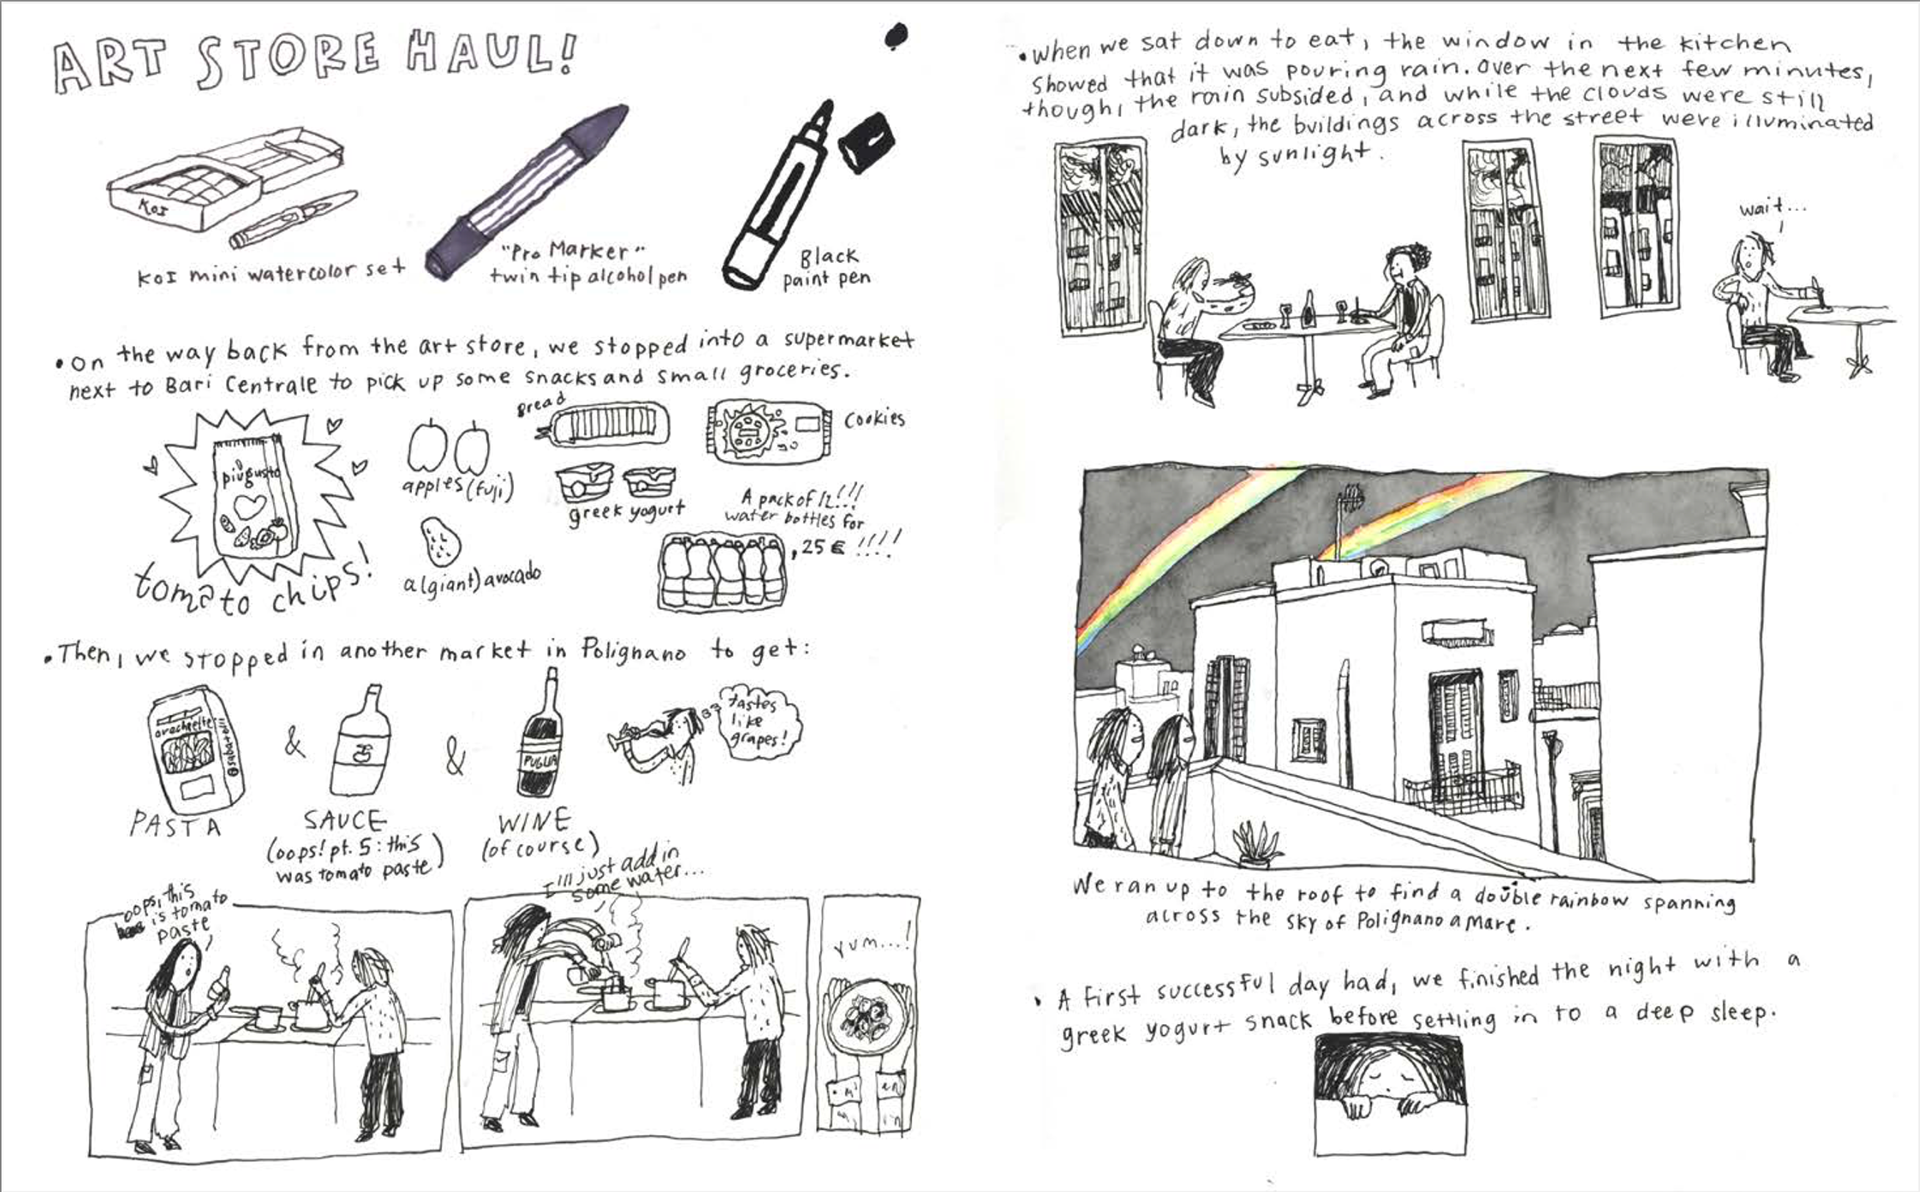 ART STORE HAUL!
KOI
KOI mini watercolor set
"Pro Marker"
twin tip alcohol pen
Black
paint pen
• On the way back from the art store, we stopped into a supermarket
next to Bari Centrale to pick up some snacks and small groceries.
piùgusto
tomato chips!
apples (fuji)
a (giant) avocado
Bread
greek yogurt
Cookies
A pack of 12!!!
water bottles for
,25 € !!!!
• Then, we stopped in another market in Polignano to get:
orecchiette
PASTA
&
SAUCE
(oops! pt. 5: this
was tomato paste)
&
PUGLIA
WINE
(of course)
tastes
like
grapes!
oops, this
is tomato
paste
I'll just add in
some water...
yum...!
• When we sat down to eat, the window in the kitchen
showed that it was pouring rain. Over the next few minutes,
though, the rain subsided, and while the clouds were still
dark, the buildings across the street were illuminated
by sunlight.
wait...
We ran up to the roof to find a double rainbow spanning
across the sky of Polignano a Mare.
• A first successful day had, we finished the night with a
greek yogurt snack before settling in to a deep sleep.